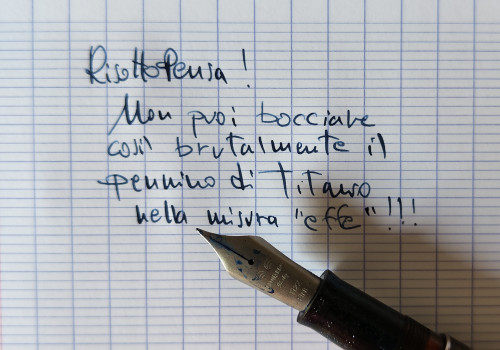 RisottoPensa!
Non puoi bocciare
così brutalmente il
pennino di Titano
nella misura "effe"!!!